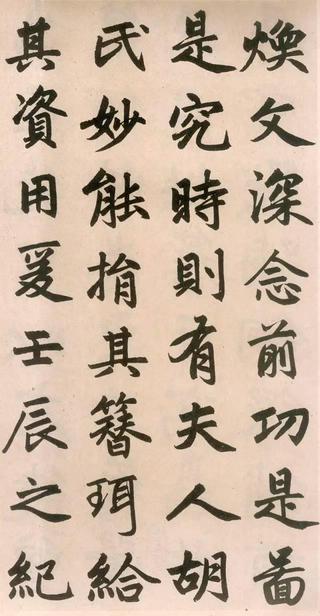 煥文深念前功是啚
是究時則有夫人胡
氏妙能捐其簪珥給
其資用爰壬辰之紀